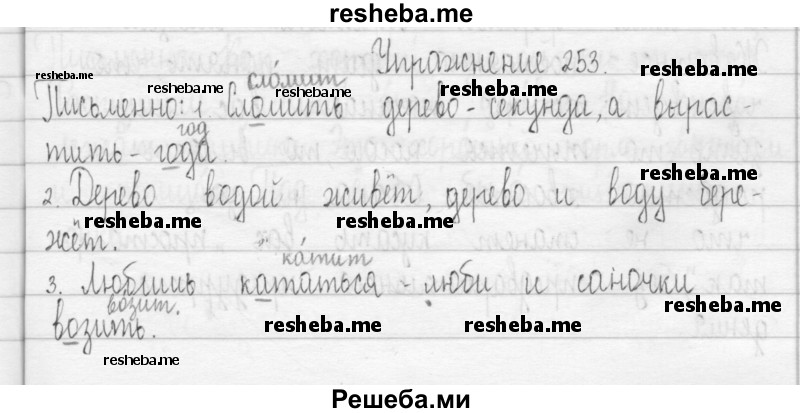 resheba.me
Упражнение 253.
resheba.me
resheba.me
сло́мит
resheba.me resheba.me
Письменно: 1. Сломить дерево - секунда, а вырас-
год
тить - года.
resheba.me
2. Дерево водой живёт, дерево и воду бере-
resheba.me resheba.me
жёт.
ка́тит
3. Любишь кататься - люби и саночки
во́зит.
resheba.me
возить.
resheba.me resheba.me
resheba.me
Решеба.ми